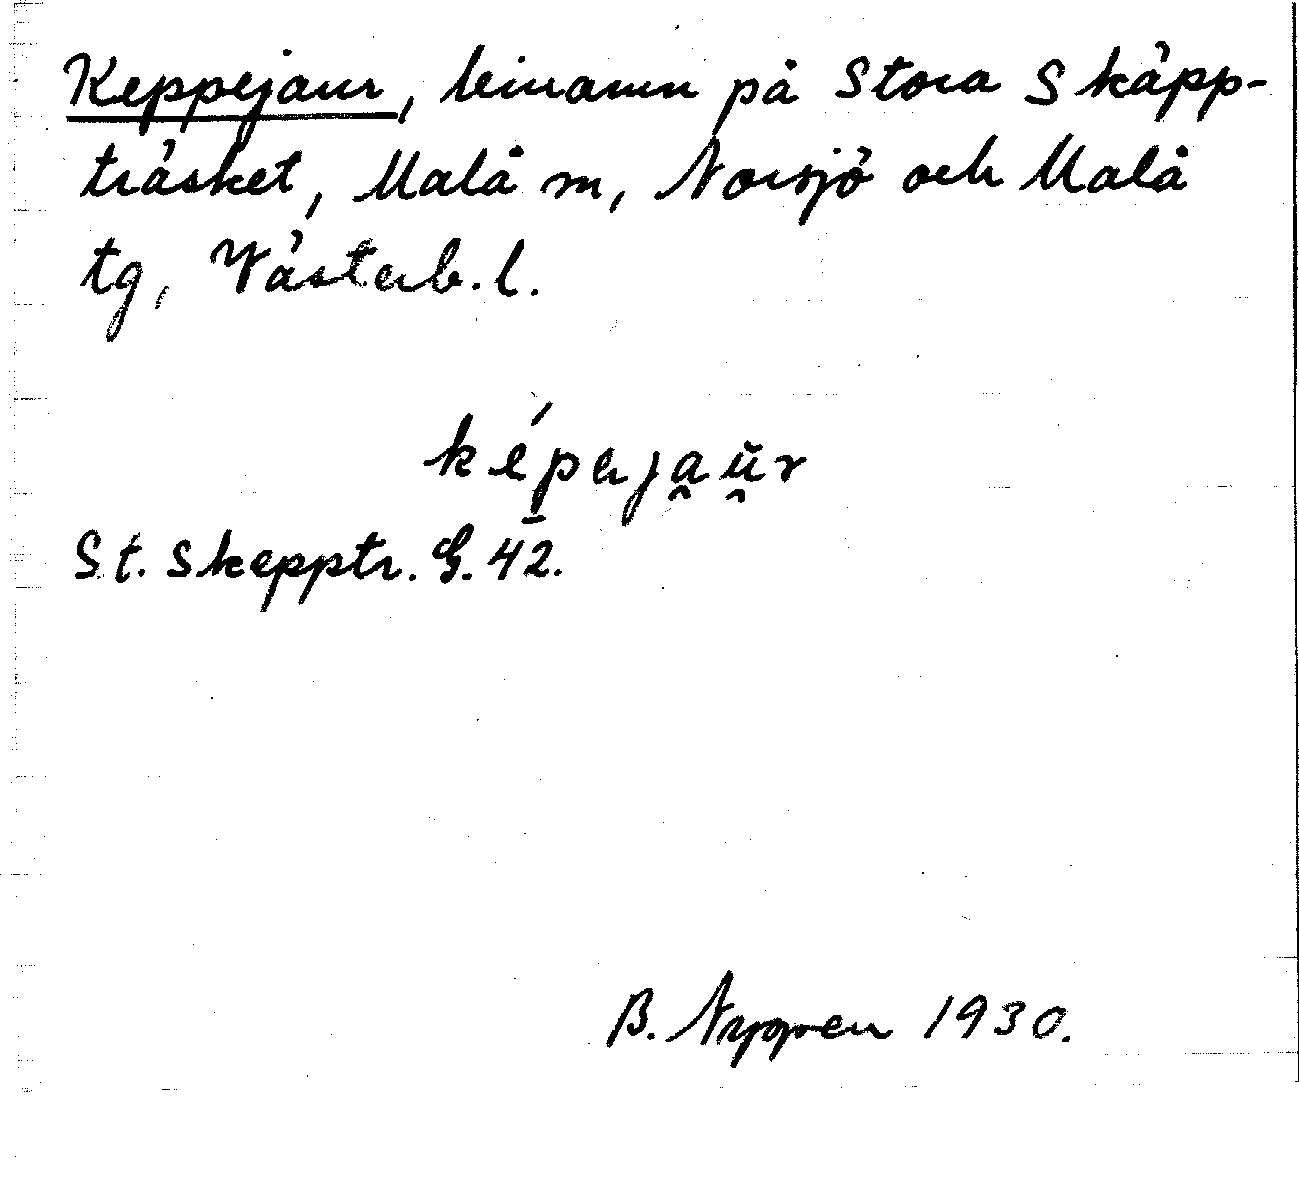 Keppejaur, binamn på Stora Skäpp-
träsket, Malå m, Norsjö och Malå
tg, Västerb. l.
képεja̯ŭ̯r
St. Skepptr. G. 42.
B. Nygren 1930.